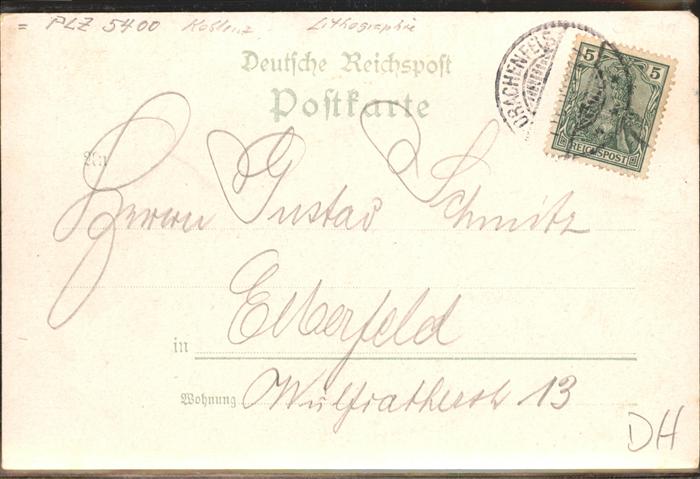 = PLZ 5400 Koblenz Lithographie
DRACHENFELS
5 5
REICHSPOST
Deutsche Reichspost
Postkarte
An
Herrn Gustav Schmitz
in Elberfeld
Wohnung Wülfratherstr 13
DH